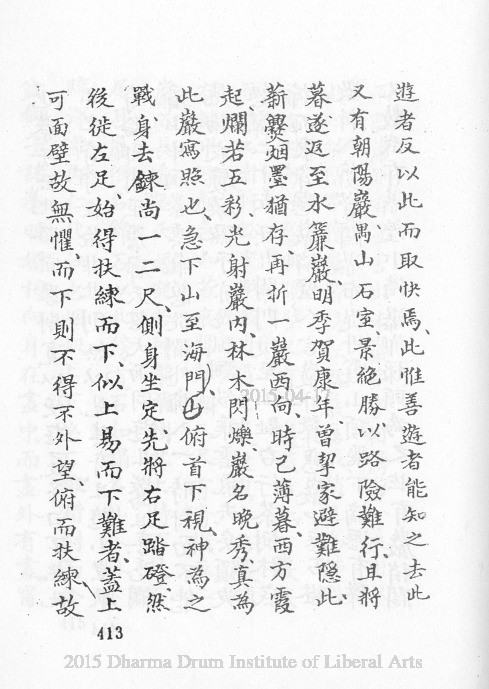 遊者反以此而取快焉、此惟善遊者能知之去此
又有朝陽巖禺山石室、景絕勝、以路險難行、且將
暮遂返至水簾巖明季賀康年、曾挈家避難隱此、
薪爨烟墨猶存、再折一巖西向、時已薄暮、西方霞
起、爛若五彩、光射巖內、林木閃爍巖名晚秀真為
此巖寫照也、急下山至海門山俯首下視、神為之
戰、身去鍊尚一二尺、側身坐定、先將右足踏磴然
後徙左足、始得扶練而下、似上易而下難者、蓋上
可面壁故無懼、而下則不得不外望、俯而扶練、故
413
2015-04-17
2015 Dharma Drum Institute of Liberal Arts